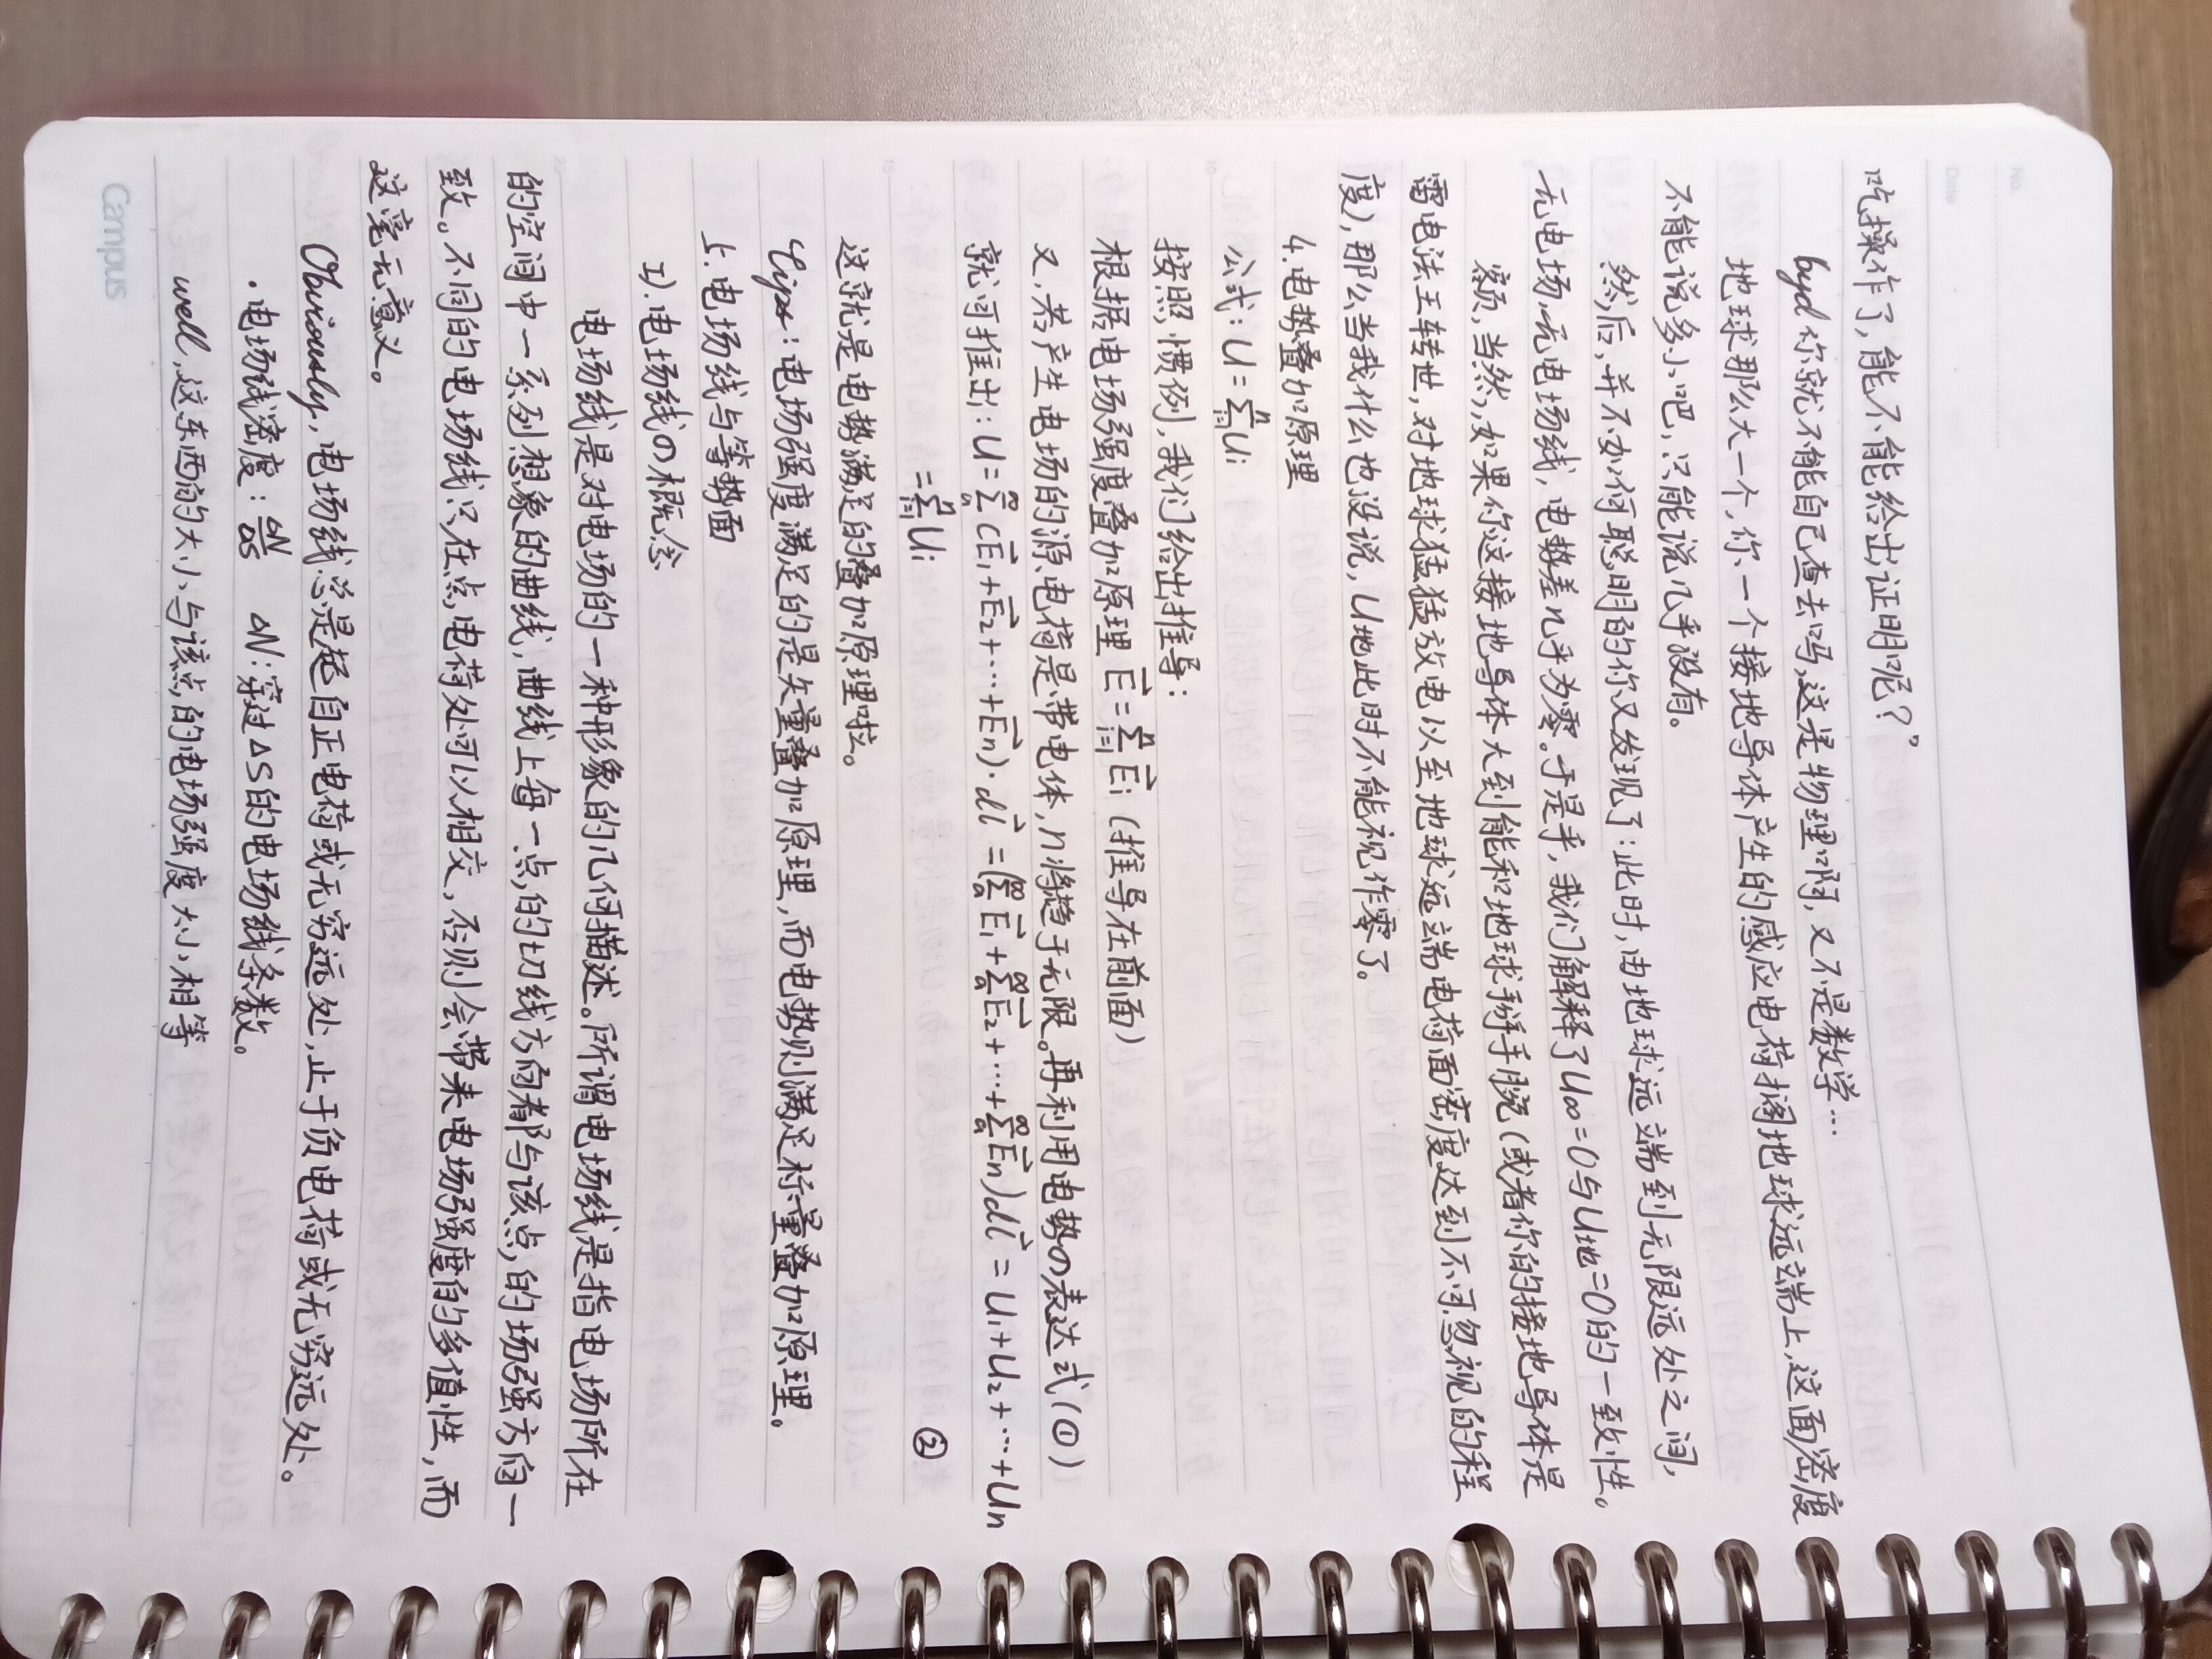 No.
Date
吃操作了,能不能给出证明呢?”
byd 你就不能自己查去吗,这是物理啊,又不是数学…
地球那么大一个,你一个接地导体产生的感应电荷搁地球远端上,这面密度
不能说多小吧,只能说几乎没有。
然后,并不如何聪明的你又发现了:此时,由地球远端到无限远处之间,
无电场,无电场线,电势差几乎为零。于是乎,我们解释了U∞=0与U地=0的一致性。
额,当然,如果你这接地导体大到能和地球掰手腕(或者你的接地导体是
雷电法王转世,对地球猛猛放电以至地球远端电荷面密度达到不可忽视的程
度),那么当我什么也没说,U地此时不能视作零了。
4.电势叠加原理
公式:U=∑ⁿᵢ₌₁Uᵢ
按照惯例,我们给出推导:
根据电场强度叠加原理 E⃗=∑ⁿᵢ₌₁E⃗ᵢ(推导在前面)
又,若产生电场的源电荷是带电体,n将趋于无限。再利用电势の表达式(①)
就可推出:U=∑^∞_a(E⃗₁+E⃗₂+…+E⃗n)·dl⃗=(∑^∞_a E⃗₁+∑^∞_a E⃗₂+…+∑^∞_a E⃗n)dl⃗=U₁+U₂+…+Un
=∑ⁿᵢ₌₁Uᵢ ②
这就是电势满足的叠加原理啦。
Tips:电场强度满足的是矢量叠加原理,而电势则满足标量叠加原理。
5.电场线与等势面
1).电场线の概念
电场线是对电场的一种形象的几何描述。所谓电场线是指电场所在
的空间中一系列想象的曲线,曲线上每一点的切线方向都与该点的场强方向一
致。不同的电场线只在点电荷处可以相交,否则会带来电场强度的多值性,而
这毫无意义。
Obviously,电场线总是起自正电荷或无穷远处,止于负电荷或无穷远处。
·电场线密度:ΔN/ΔS ΔN:穿过ΔS的电场线条数。
well,这东西的大小与该点的电场强度大小相等
Campus